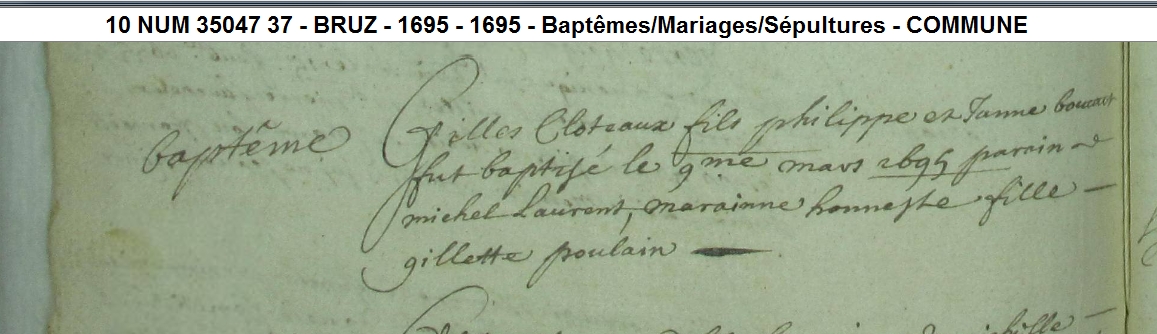 10 NUM 35047 37 - BRUZ - 1695 - 1695 - Baptêmes/Mariages/Sépultures - COMMUNE
baptême
Gilles Cloteaux fils philippe et Janne
fut baptisé le 9me mars 1695 parain
michel Laurent, marainne honneste fille
gillette poulain